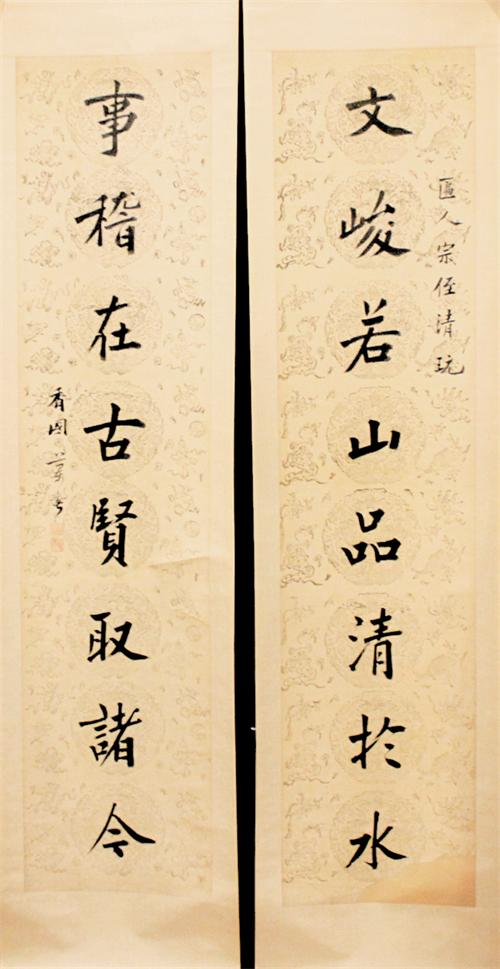 文峻若山品清於水
匡人宗侄清玩
事稽在古賢取諸今
香國